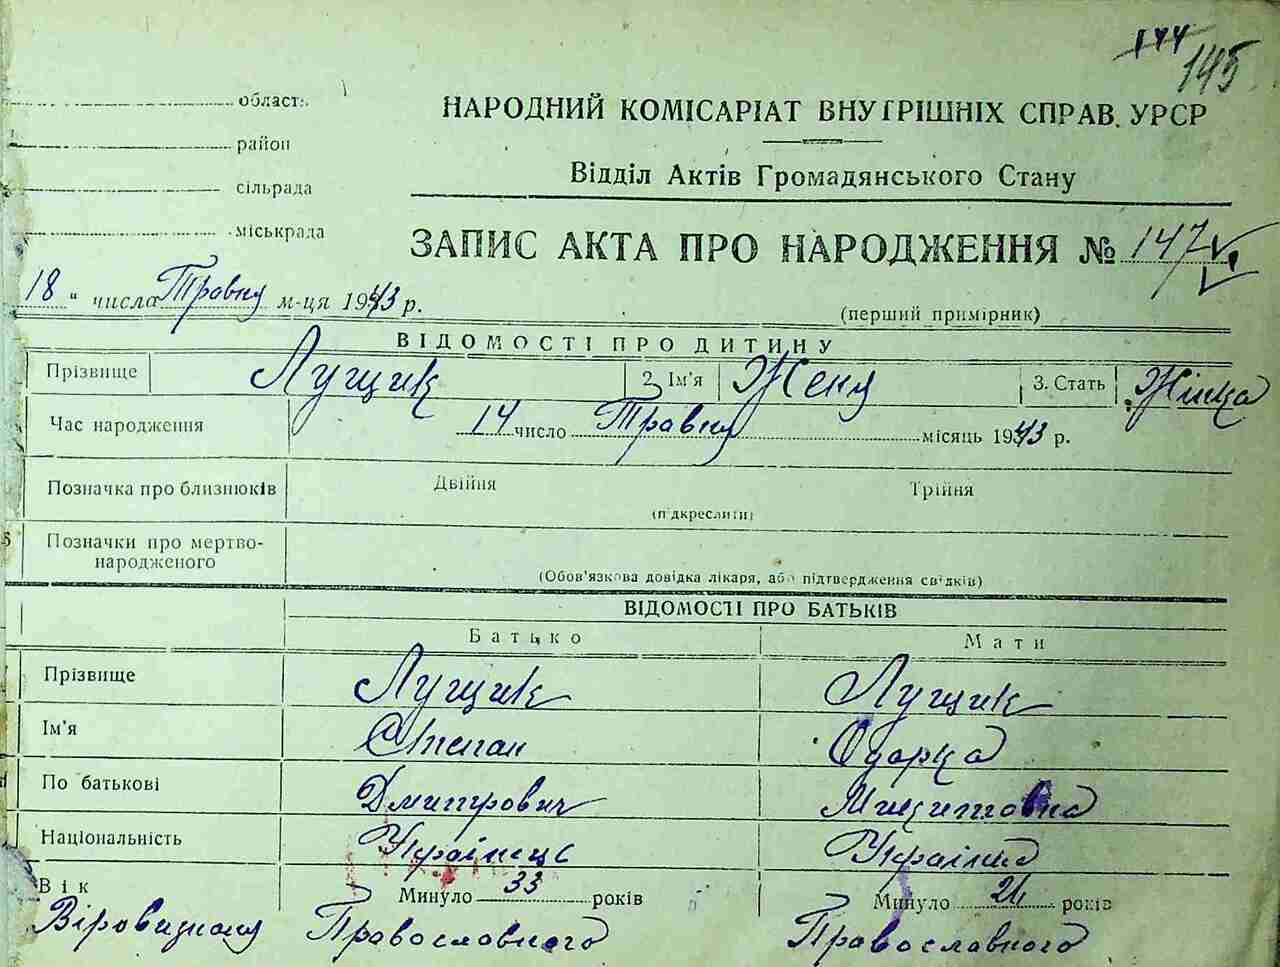 144
145
област.
НАРОДНИЙ КОМІСАРІАТ ВНУТРІШНІХ СПРАВ. УРСР
район
Відділ Актів Громадянського Стану
сільрада
міськрада
ЗАПИС АКТА ПРО НАРОДЖЕННЯ № 147
18 " числа Травня м-ця 1943 р.
(перший примірник)
ВІДОМОСТІ ПРО ДИТИНУ
Прізвище Лущик 2. Ім'я Женя 3. Стать Жінка
Час народження 14 число Травня місяць 1943 р.
Позначка про близнюків Двійня Трійня
(підкреслити)
5 Позначки про мертво-
народженого
(Обов'язкова довідка лікаря, або підтвердження свідків)
ВІДОМОСТІ ПРО БАТЬКІВ
Батько Мати
Прізвище Лущик Лущик
Ім'я Степан Одарка
По батькові Дмитрович Микитовна
Національність Українець Українка
Вік Минуло 33 років Минуло років
Віровизнання Православного Православного